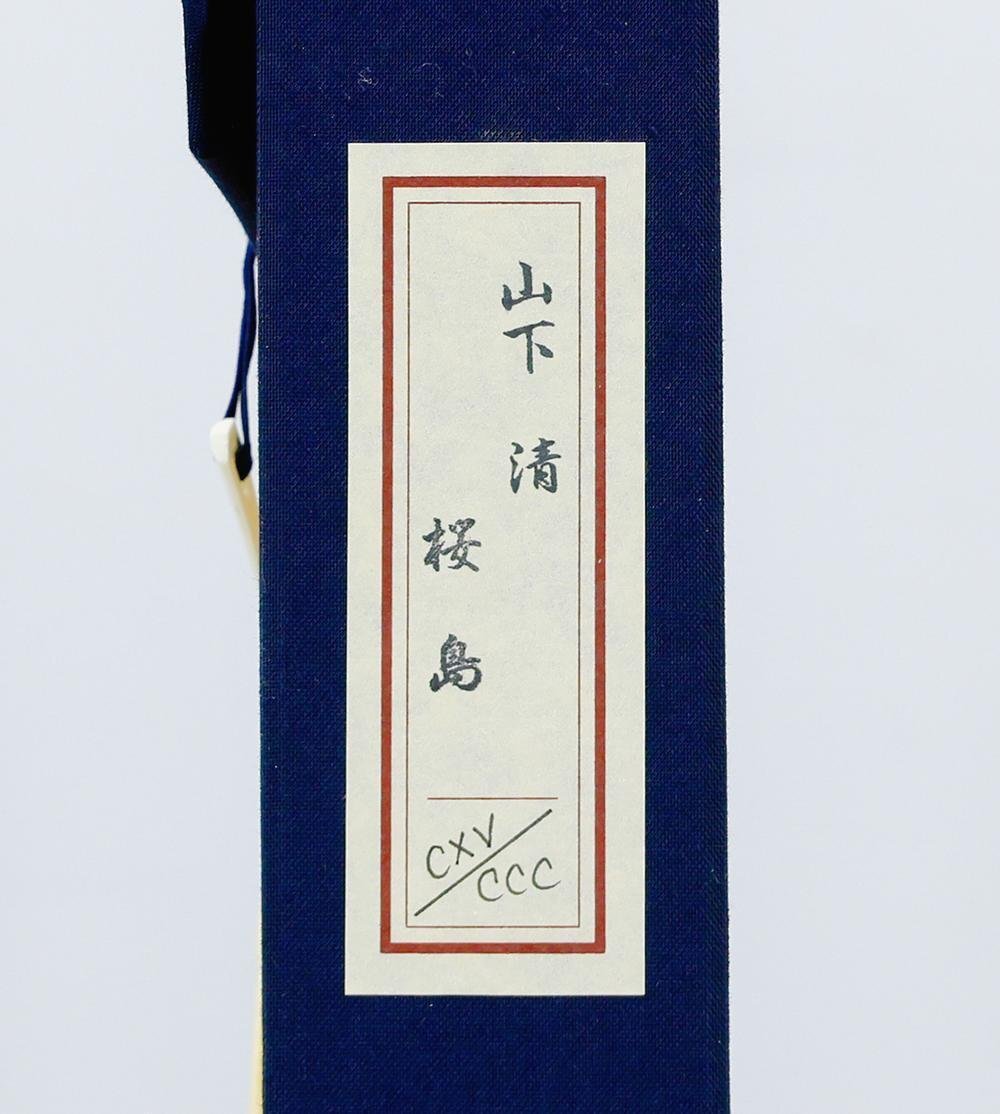 山下 清
桜島
CXV/CCC